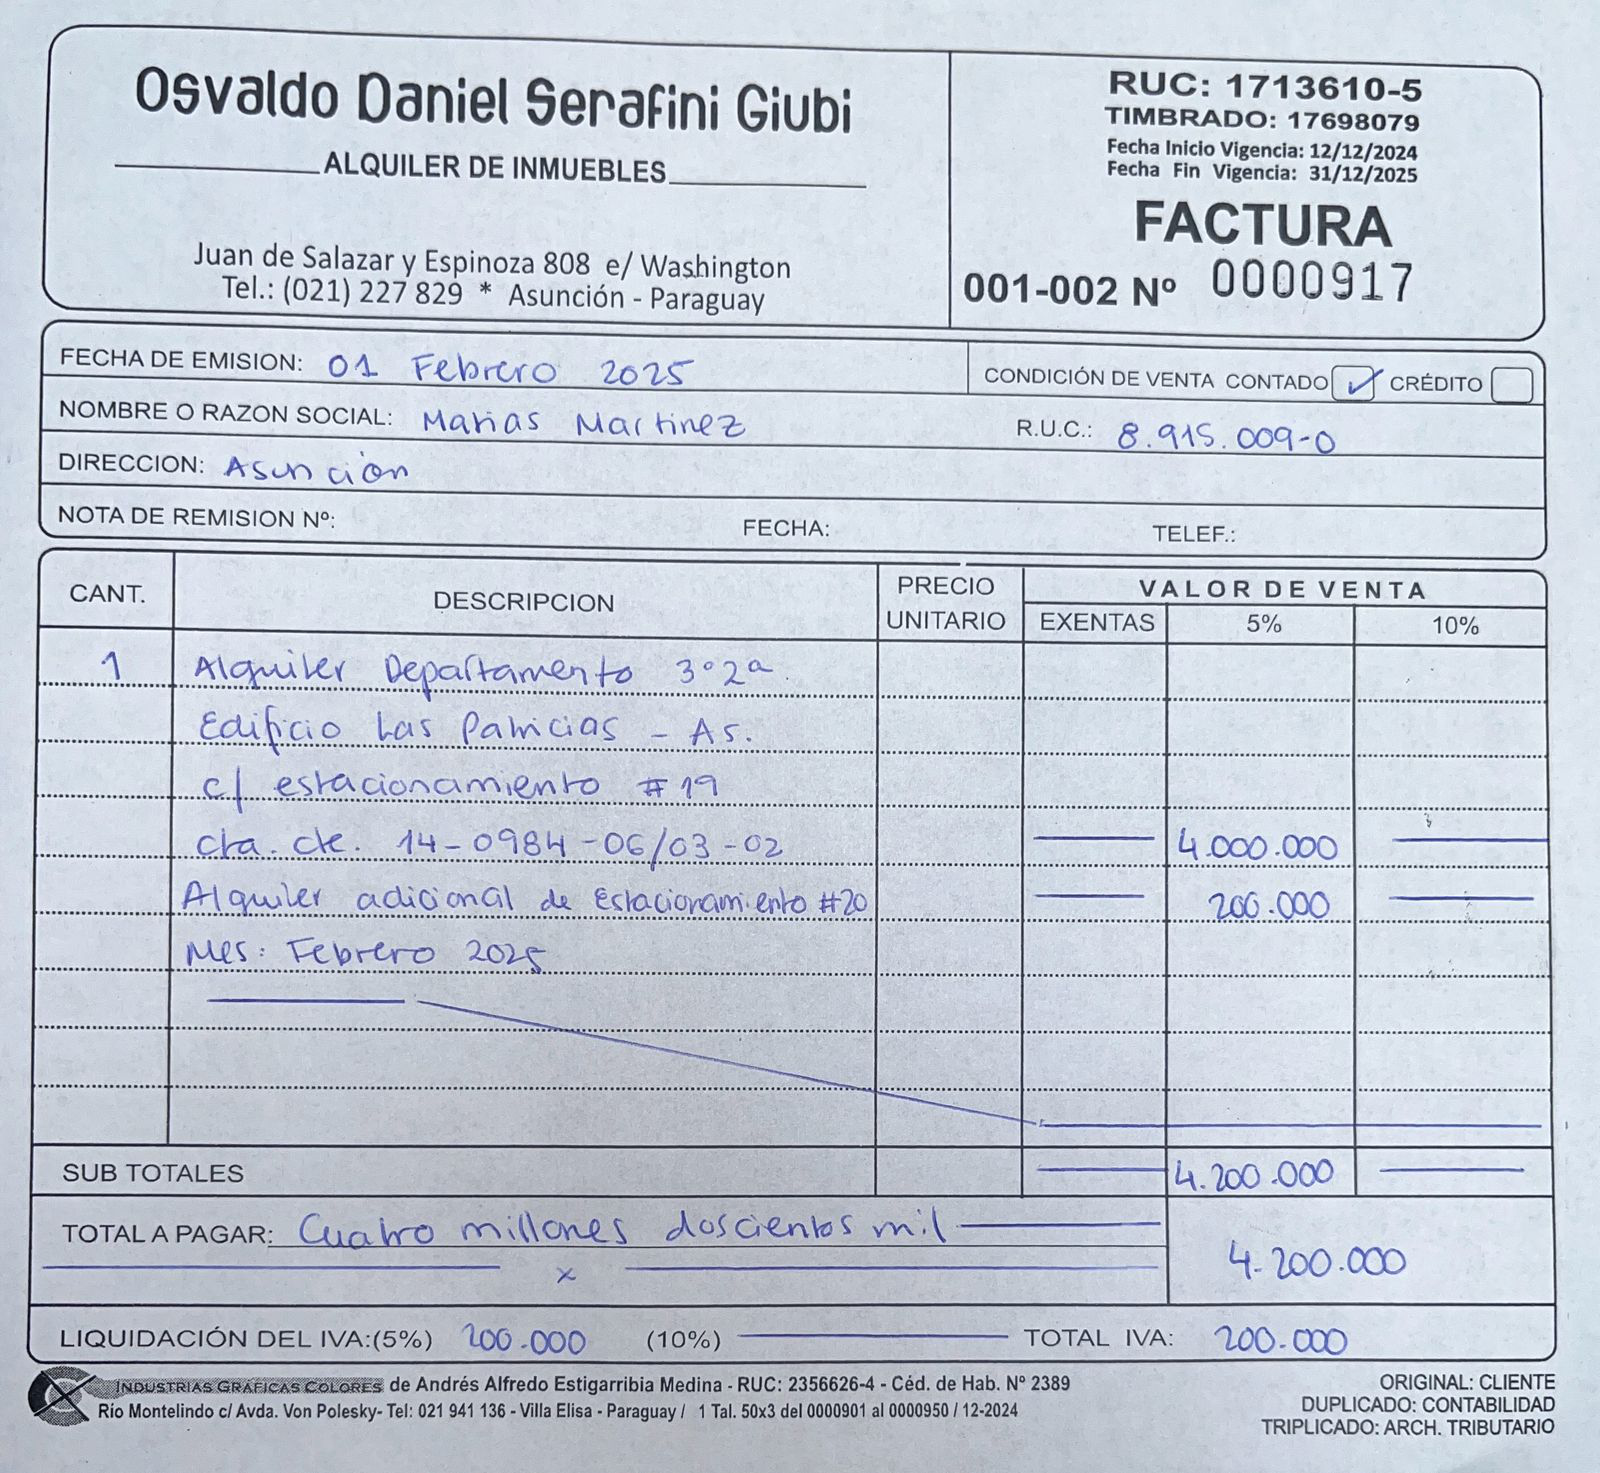 Osvaldo Daniel Serafini Giubi
ALQUILER DE INMUEBLES
Juan de Salazar y Espinoza 808 e/ Washington
Tel.: (021) 227 829 * Asunción - Paraguay
RUC: 1713610-5
TIMBRADO: 17698079
Fecha Inicio Vigencia: 12/12/2024
Fecha Fin Vigencia: 31/12/2025
FACTURA
001-002 Nº 0000917
FECHA DE EMISION: 01 Febrero 2025 CONDICIÓN DE VENTA CONTADO ✓ CRÉDITO
NOMBRE O RAZON SOCIAL: Matias Martinez R.U.C.: 8.915.009-0
DIRECCION: Asunción
NOTA DE REMISION Nº: FECHA: TELEF.:
CANT. DESCRIPCION PRECIO UNITARIO VALOR DE VENTA
EXENTAS 5% 10%
1 Alquiler Departamento 3º2ª
Edificio Las Patricias - As.
c/ estacionamiento #19
cta. cte. 14-0984-06/03-02 4.000.000
Alquiler adicional de Estacionamiento #20 200.000
Mes: Febrero 2025
SUB TOTALES 4.200.000
TOTAL A PAGAR: Cuatro millones doscientos mil
x 4.200.000
LIQUIDACIÓN DEL IVA:(5%) 200.000 (10%) TOTAL IVA: 200.000
INDUSTRIAS GRÁFICAS COLORES de Andrés Alfredo Estigarribia Medina - RUC: 2356626-4 - Céd. de Hab. Nº 2389
Río Montelindo c/ Avda. Von Polesky- Tel: 021 941 136 - Villa Elisa - Paraguay / 1 Tal. 50x3 del 0000901 al 0000950 / 12-2024
ORIGINAL: CLIENTE
DUPLICADO: CONTABILIDAD
TRIPLICADO: ARCH. TRIBUTARIO